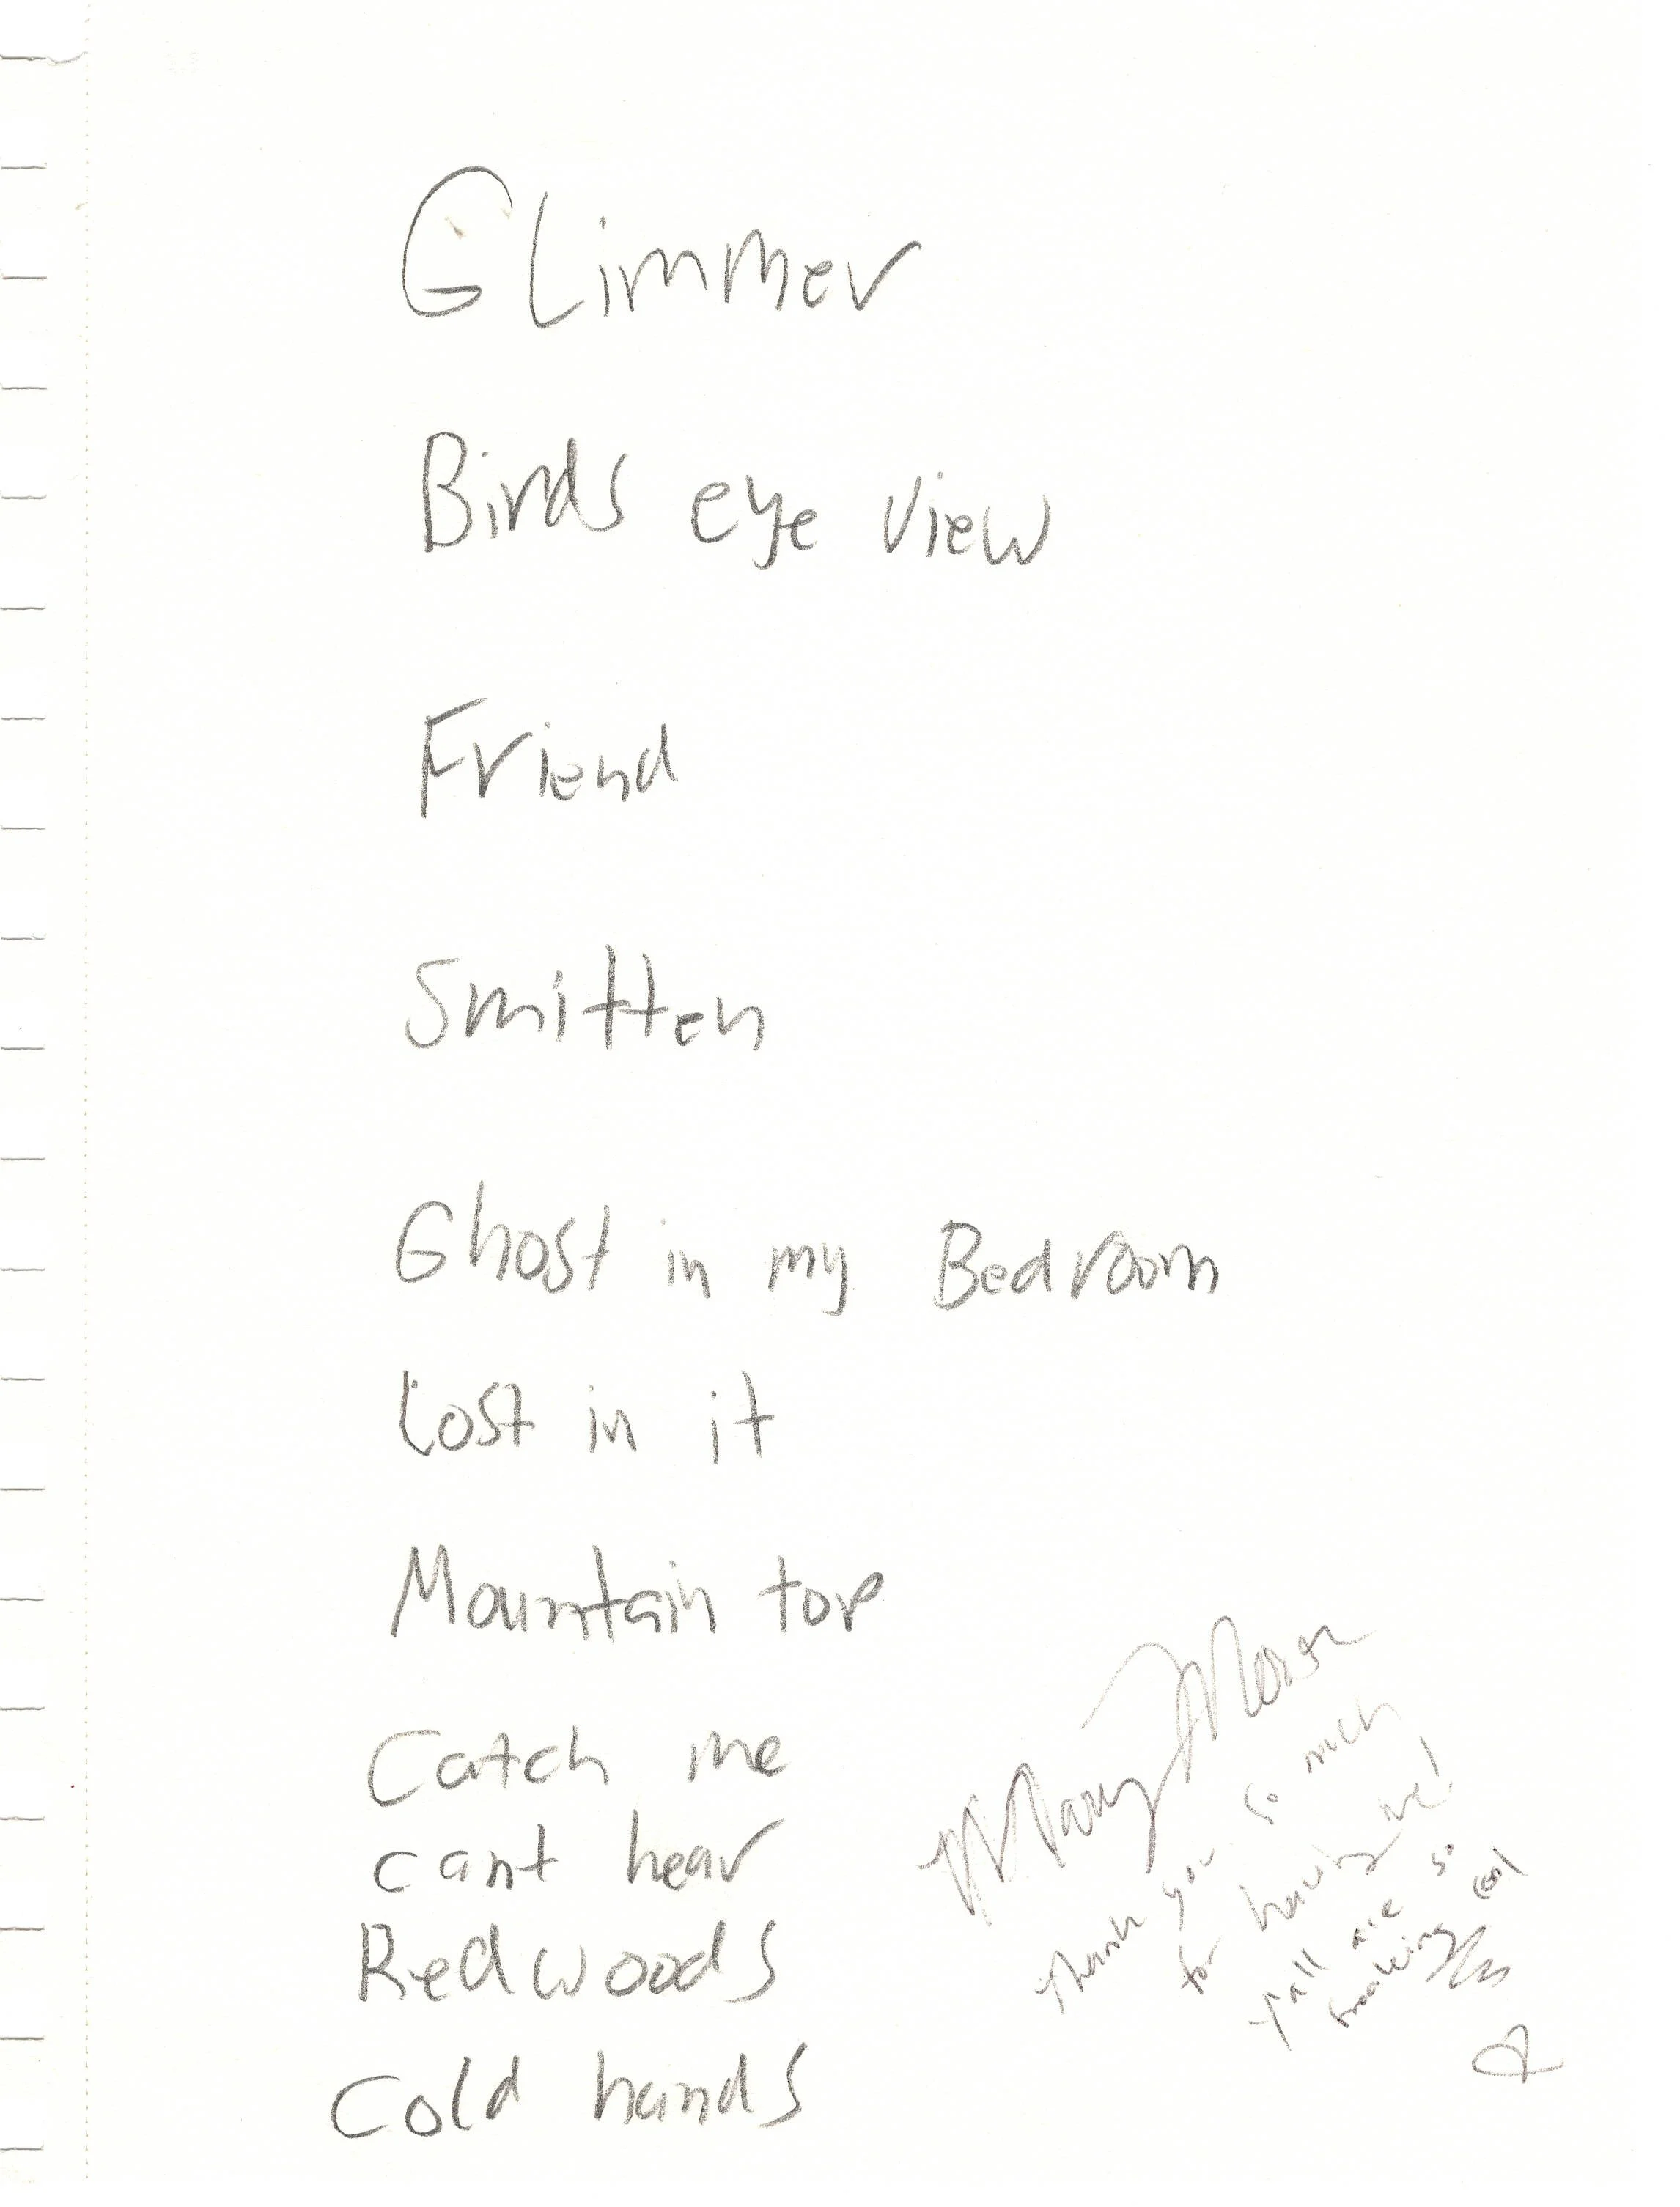 GLimmer
Birds eye view
Friend
Smitten
Ghost in my Bedroom
Lost in it
Mountain top
Catch me
cant hear
Redwoods
Cold hands
Mary
Thank you so much
for having me!
Y'all are so
freaking cool